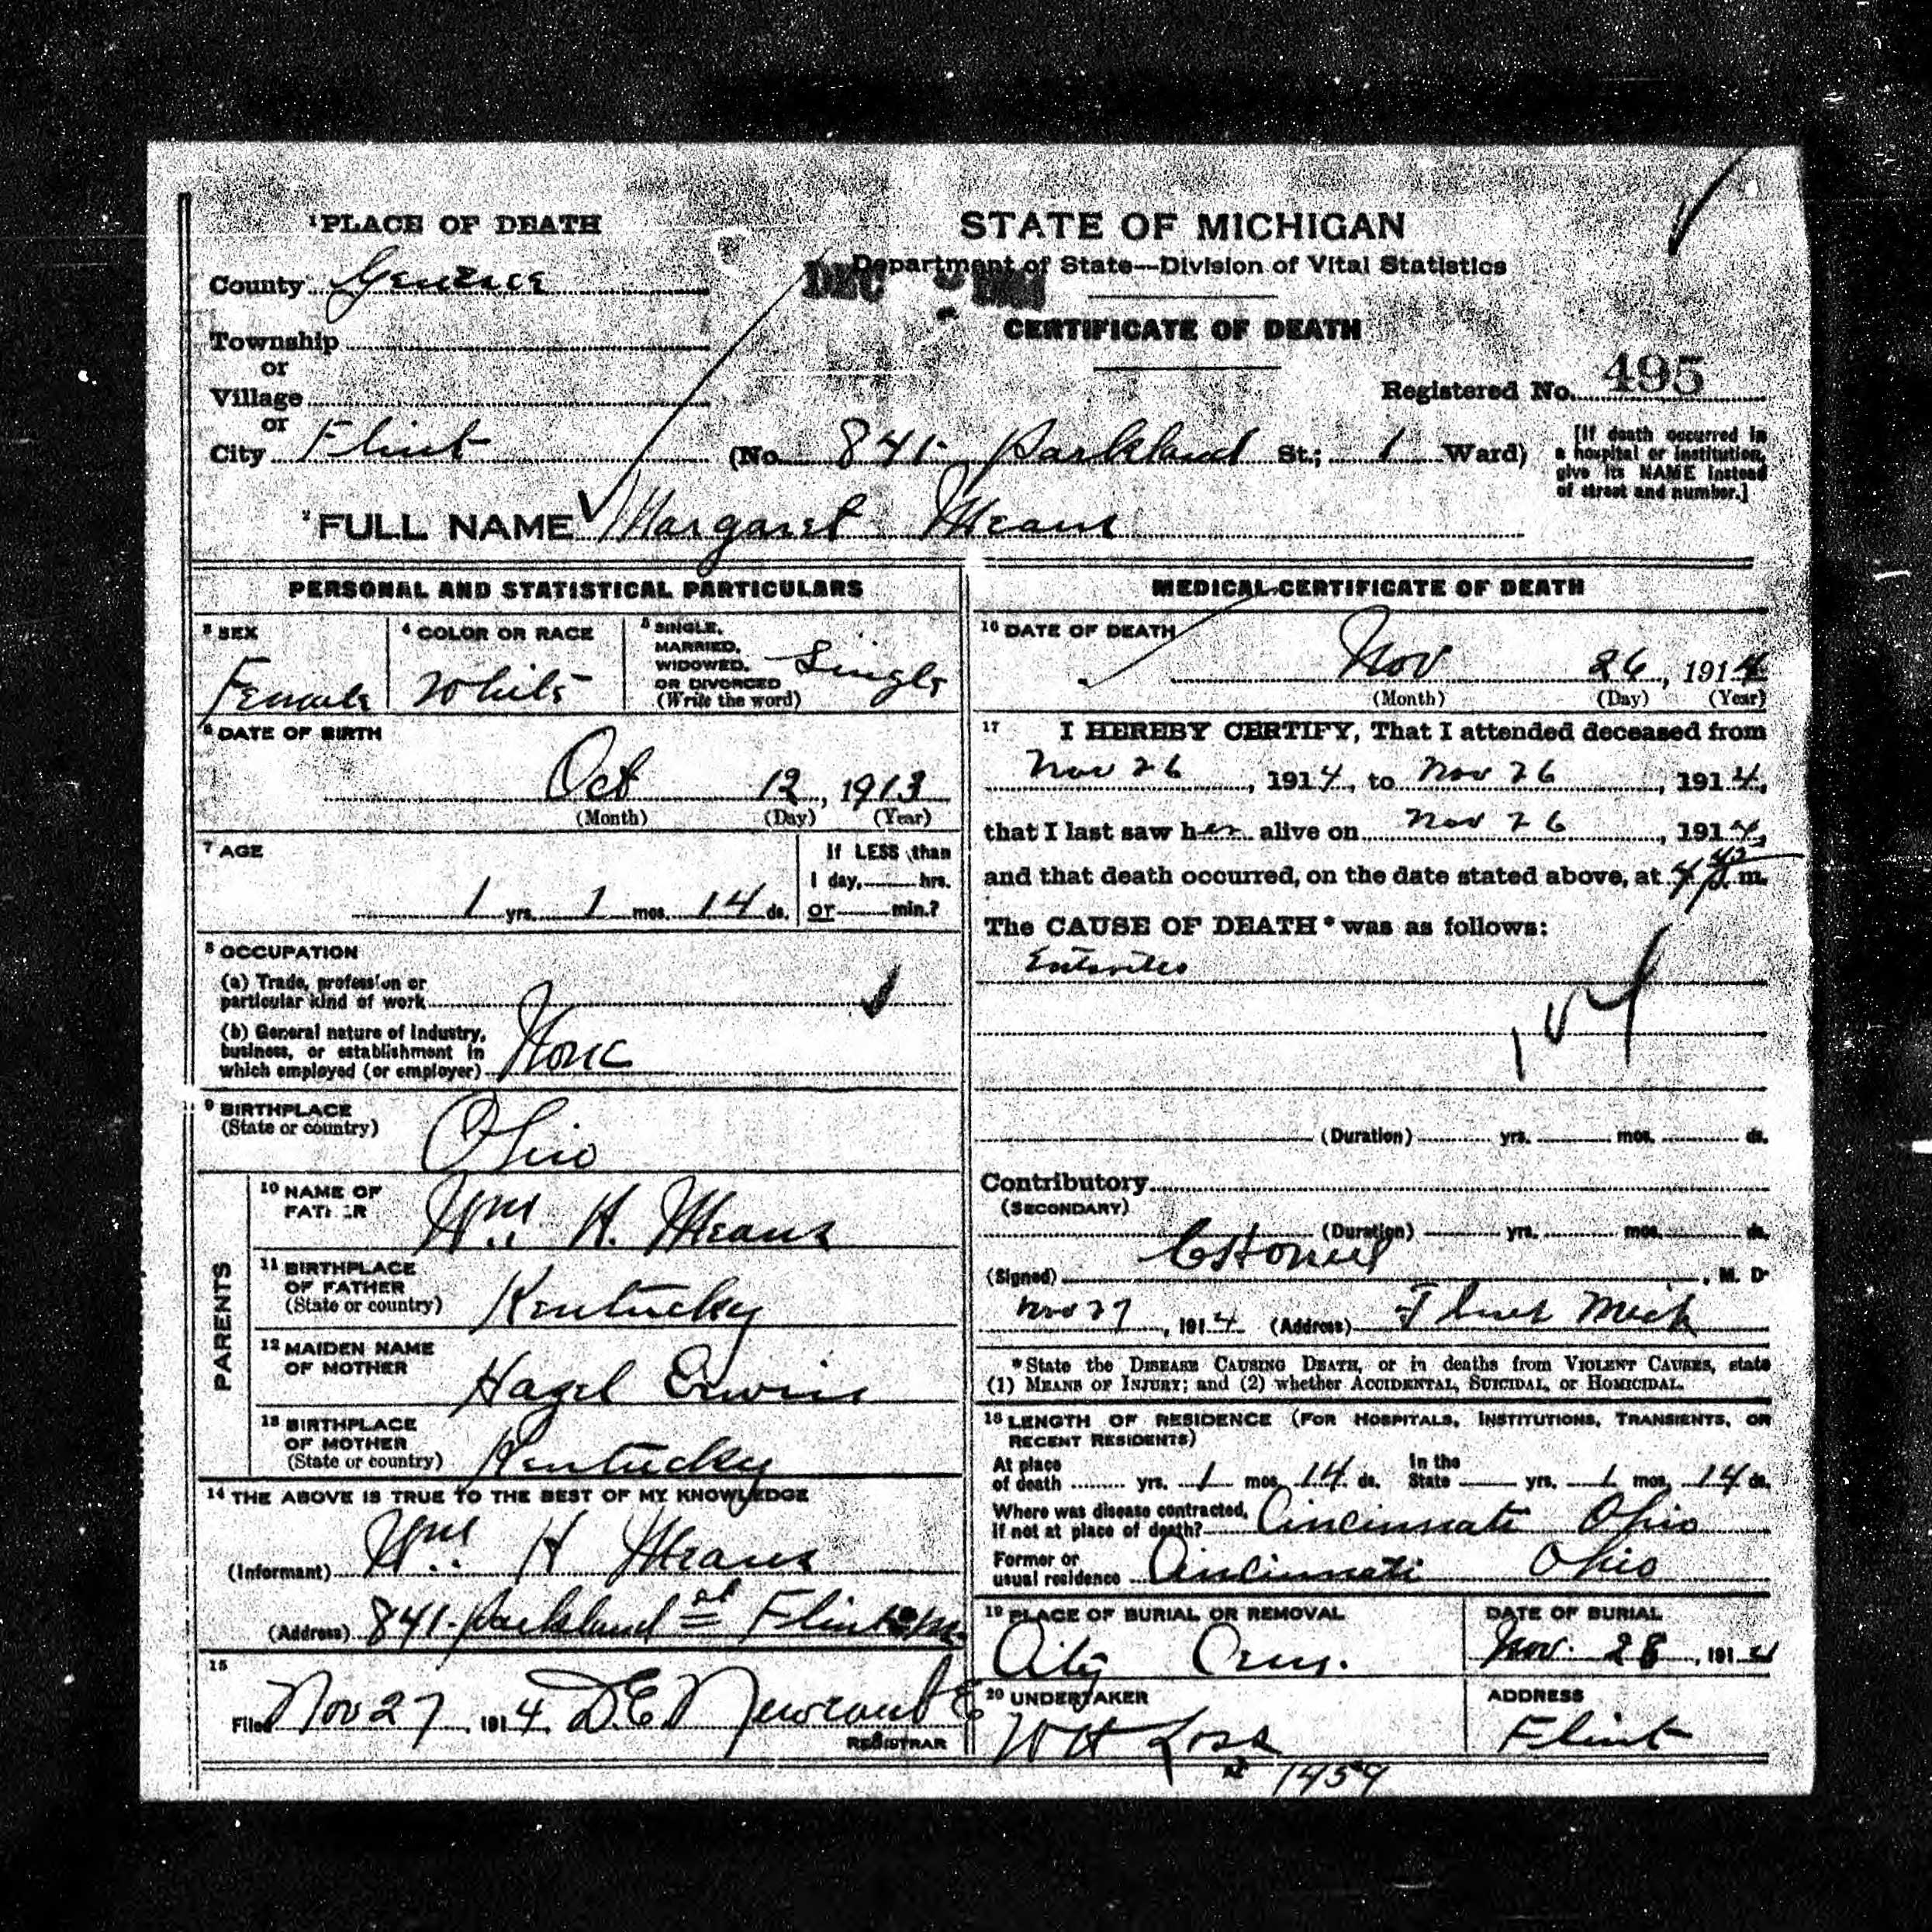 1 PLACE OF DEATH
County Genesee
Township
or
Village
or
City Flint
STATE OF MICHIGAN
Department of State—Division of Vital Statistics
DEC
CERTIFICATE OF DEATH
Registered No. 495
(No. 841 Parkland St.; 1 Ward)
[If death occurred in
a hospital or institution,
give its NAME instead
of street and number.]
2 FULL NAME Margaret Means
PERSONAL AND STATISTICAL PARTICULARS
3 SEX
Female
4 COLOR OR RACE
White
5 SINGLE,
MARRIED,
WIDOWED,
OR DIVORCED
(Write the word)
Single
6 DATE OF BIRTH
Oct 12, 1913
(Month) (Day) (Year)
7 AGE
1 yrs. 1 mos. 14 ds.
If LESS than
1 day, hrs.
or min.?
8 OCCUPATION
(a) Trade, profession or
particular kind of work
(b) General nature of Industry,
business, or establishment in
which employed (or employer)
None
9 BIRTHPLACE
(State or country)
Ohio
PARENTS
10 NAME OF
FATHER
Wm. H. Means
11 BIRTHPLACE
OF FATHER
(State or country)
Kentucky
12 MAIDEN NAME
OF MOTHER
Hazel Erwin
13 BIRTHPLACE
OF MOTHER
(State or country)
Kentucky
14 THE ABOVE IS TRUE TO THE BEST OF MY KNOWLEDGE
(Informant) Wm. H Means
(Address) 841 Parkland St Flint
15
Filed Nov 27, 1914. D.E. Newcombe
REGISTRAR
MEDICAL CERTIFICATE OF DEATH
16 DATE OF DEATH
Nov 26, 1914
(Month) (Day) (Year)
17 I HEREBY CERTIFY, That I attended deceased from
Nov 26, 1914, to Nov 26, 1914,
that I last saw her alive on Nov 26, 1914,
and that death occurred, on the date stated above, at m.
The CAUSE OF DEATH * was as follows:
Enteritis
(Duration) yrs. mos. ds.
Contributory
(SECONDARY)
(Duration) yrs. mos. ds.
(Signed) , M. D.
Nov 27, 1914 (Address) Flint Mich
*State the DISEASE CAUSING DEATH, or in deaths from VIOLENT CAUSES, state
(1) MEANS OF INJURY; and (2) whether ACCIDENTAL, SUICIDAL, or HOMICIDAL.
18 LENGTH OF RESIDENCE (FOR HOSPITALS, INSTITUTIONS, TRANSIENTS, OR
RECENT RESIDENTS)
At place
of death yrs. 1 mos. 14 ds.
In the
State yrs. 1 mos. 14 ds.
Where was disease contracted,
If not at place of death? Cincinnati Ohio
Former or
usual residence Cincinnati Ohio
19 PLACE OF BURIAL OR REMOVAL
City Cem.
DATE OF BURIAL
Nov. 28, 1914
20 UNDERTAKER
W H
ADDRESS
Flint
1459